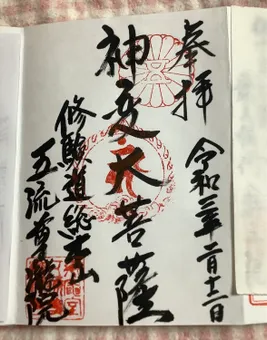 奉拝
令和二年二月十二日
神変大菩薩
修験道総本山
五流尊瀧院